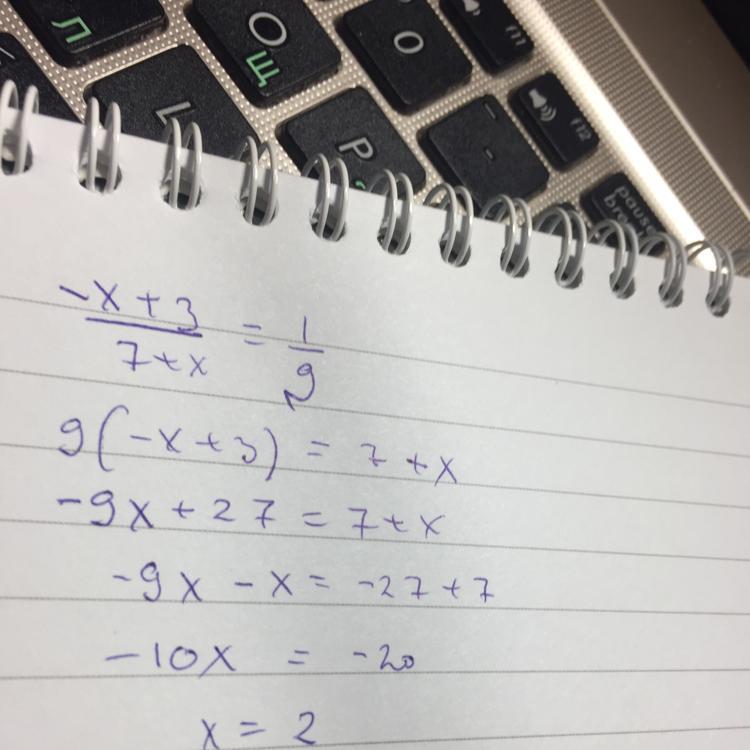 Л
O Щ
O
f11
L
P
-
f12
pause
-x + 3 / 7 + x = 1 / 9
9(-x + 3) = 7 + x
-9x + 27 = 7 + x
-9x - x = -27 + 7
-10x = -20
x = 2